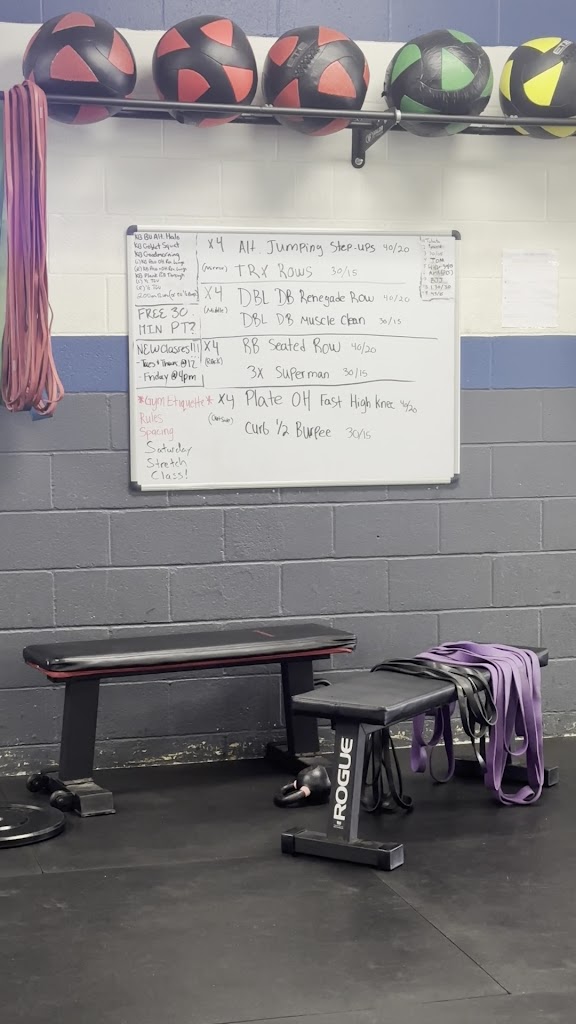 KB BU Alt Halo
KB Goblet Squat
KB Goodmorning
FREE 30
MIN PT?
NEW Classes!!!
- Tues & Thurs @12
- Friday @4pm
*Gym Etiquette*
Rules
Spacing
Saturday
Stretch
Class!
x4 Alt. Jumping Step-ups 40/20
(Mirror) TRX Rows 30/15
x4 DBL DB Renegade Row 40/20
(Middle) DBL DB Muscle Clean 30/15
x4 BB Seated Row 40/20
(Rack) 3x Superman 30/15
x4 Plate OH Fast High Knee 40/20
Curb 1/2 Burpee 30/15
ROGUE